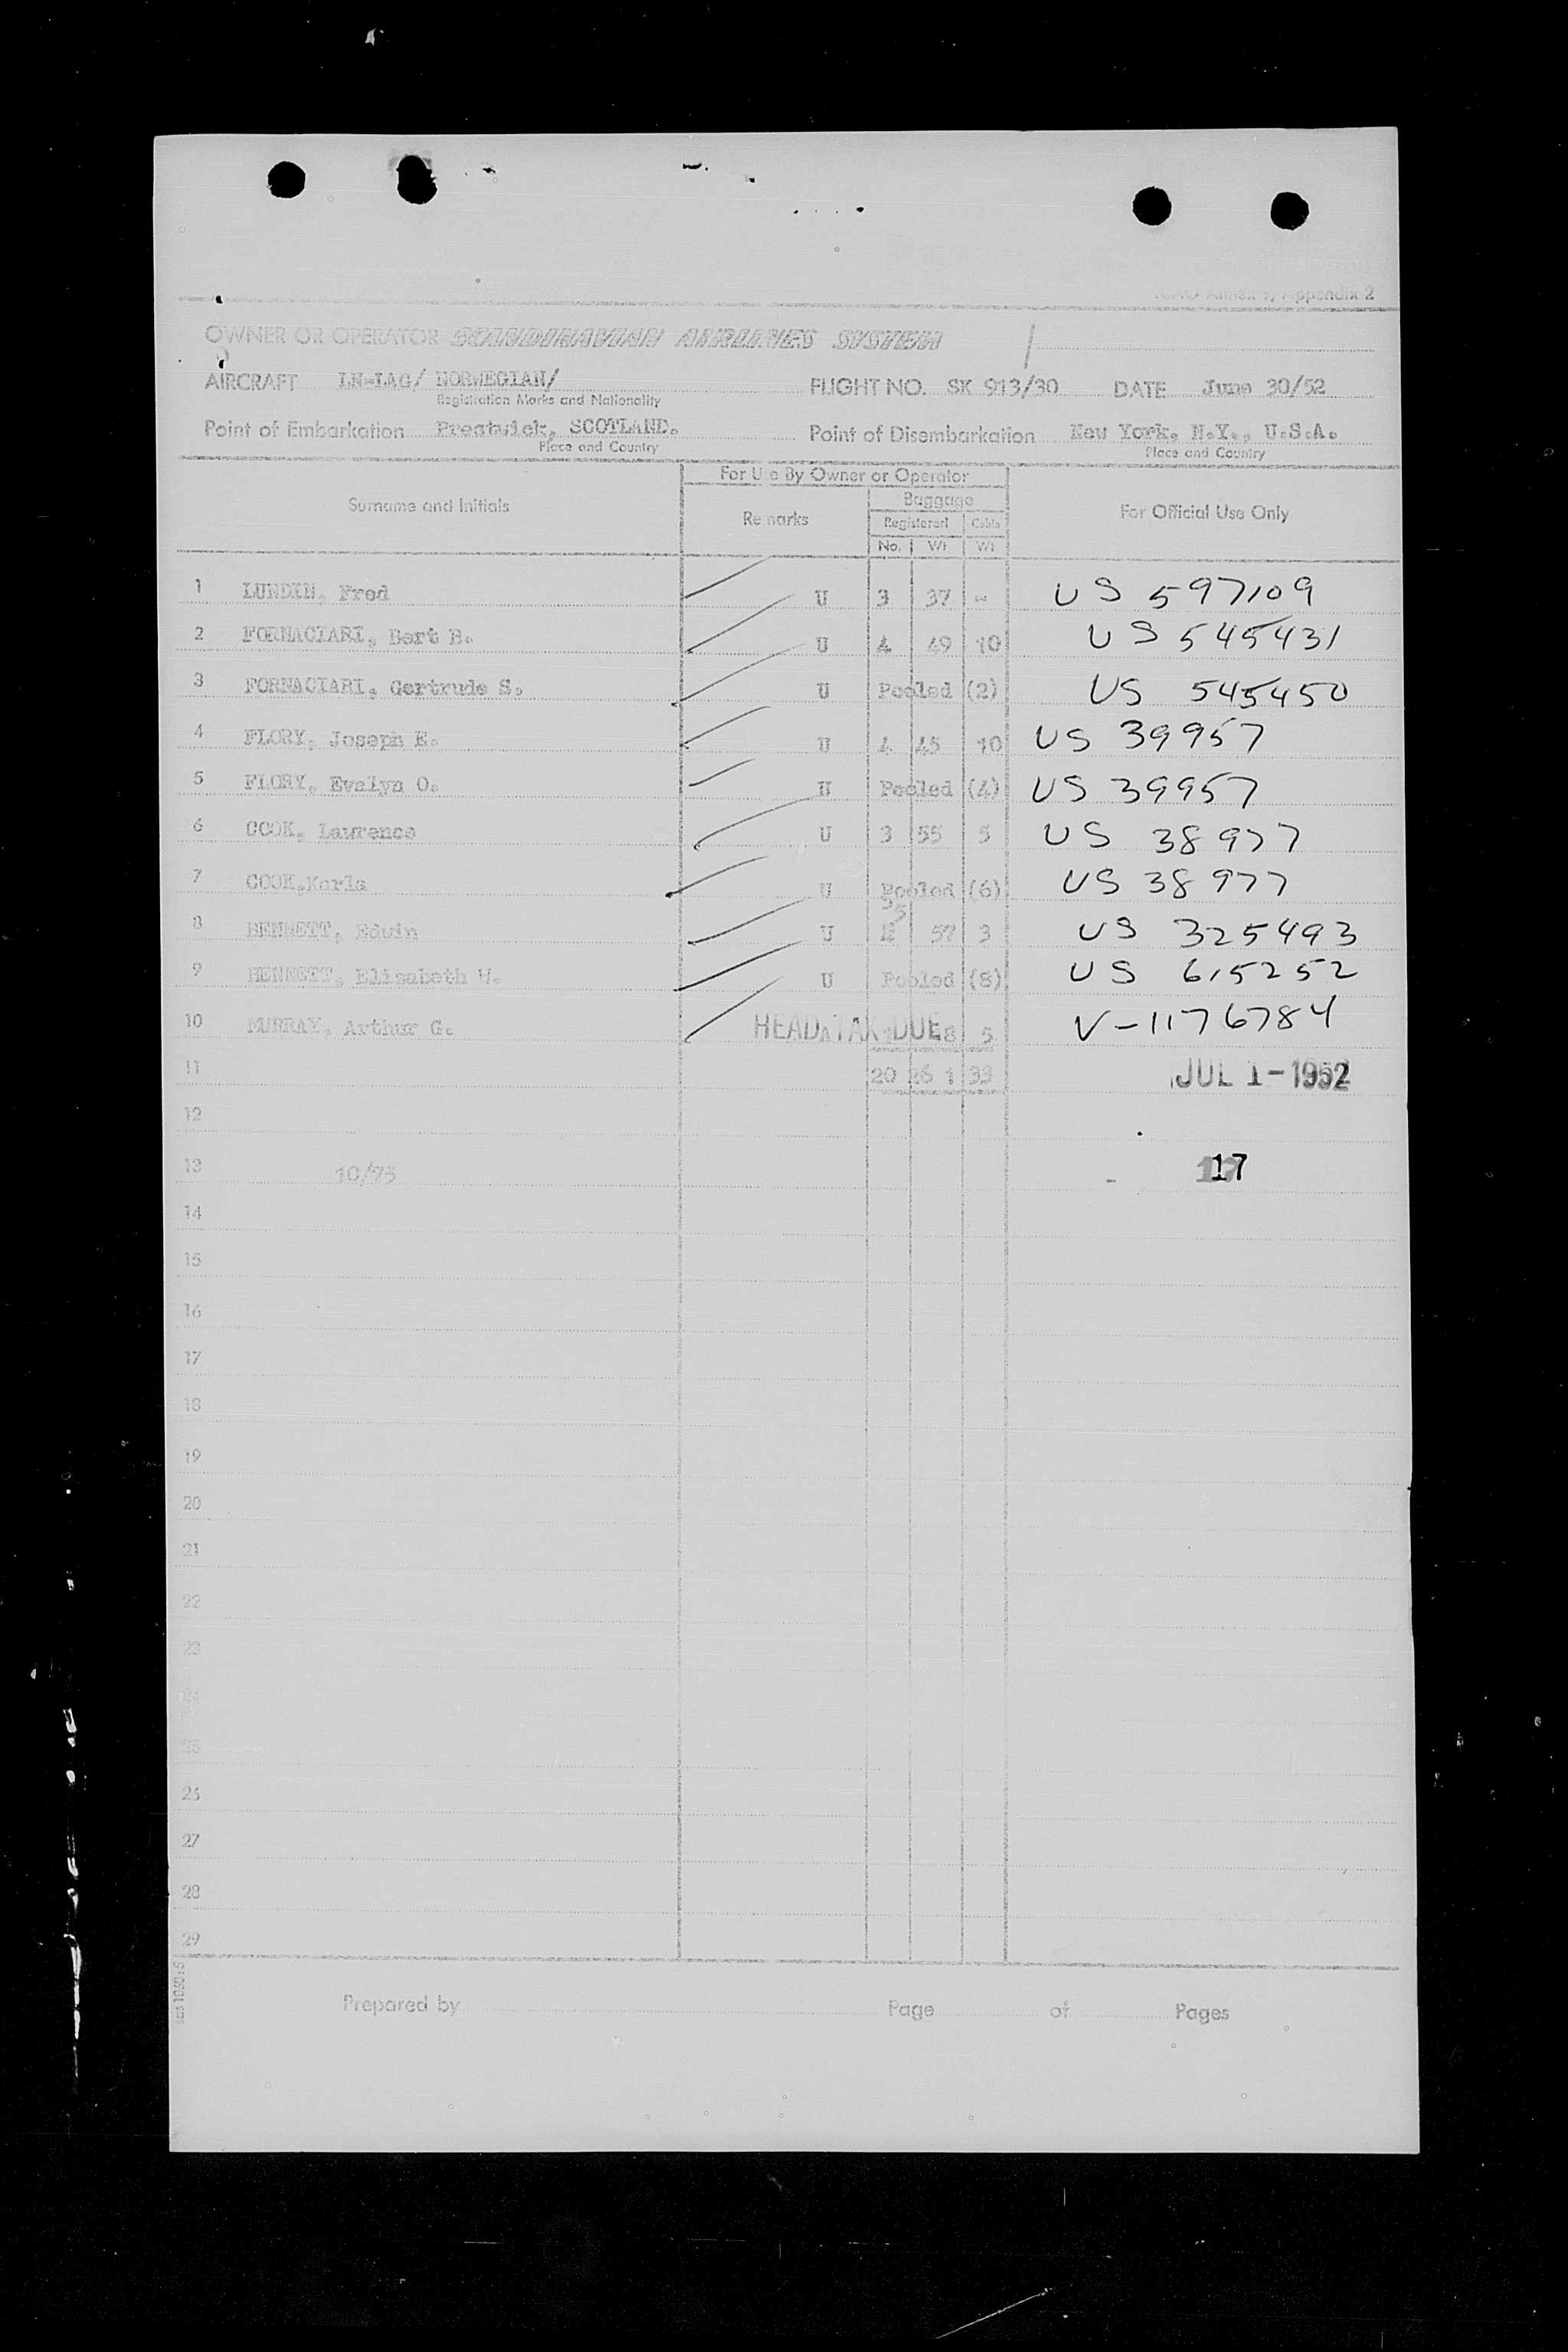 ICAO Annex 9, Appendix 2
OWNER OR OPERATOR SCANDINAVIAN AIRLINES SYSTEM
AIRCRAFT LN-LAG/ NORWEGIAN/ FLIGHT NO. SK 913/30 DATE June 30/52
Registration Marks and Nationality
Point of Embarkation Prestwick, SCOTLAND. Point of Disembarkation New York, N.Y., U.S.A.
Place and Country Place and Country
For Use By Owner or Operator
Surname and Initials Remarks Baggage For Official Use Only
Registered Cabin
No. Wt Wt
1 LUNDIN, Fred U 3 37 - US 597109
2 FORNACIARI, Bert B. U 4 49 10 US 545431
3 FORNACIARI, Gertrude S. U Pooled (2) US 545450
4 FLORY, Joseph E. U 4 45 10 US 39957
5 FLORY, Evelyn O. U Pooled (4) US 39957
6 COOK, Lawrence U 3 55 5 US 38977
7 COOK, Karla U Pooled (6) US 38977
8 BENNETT, Edwin U 57 3 US 325493
9 BENNETT, Elisabeth V. U Pooled (8) US 615252
10 MURRAY, Arthur G. HEAD TAX DUE 8 5 V-1176784
11 20 26 1 33 JUL 1-1952
12
13 10/75 17
14
15
16
17
18
19
20
21
22
23
24
25
26
27
28
29
Prepared by Page of Pages